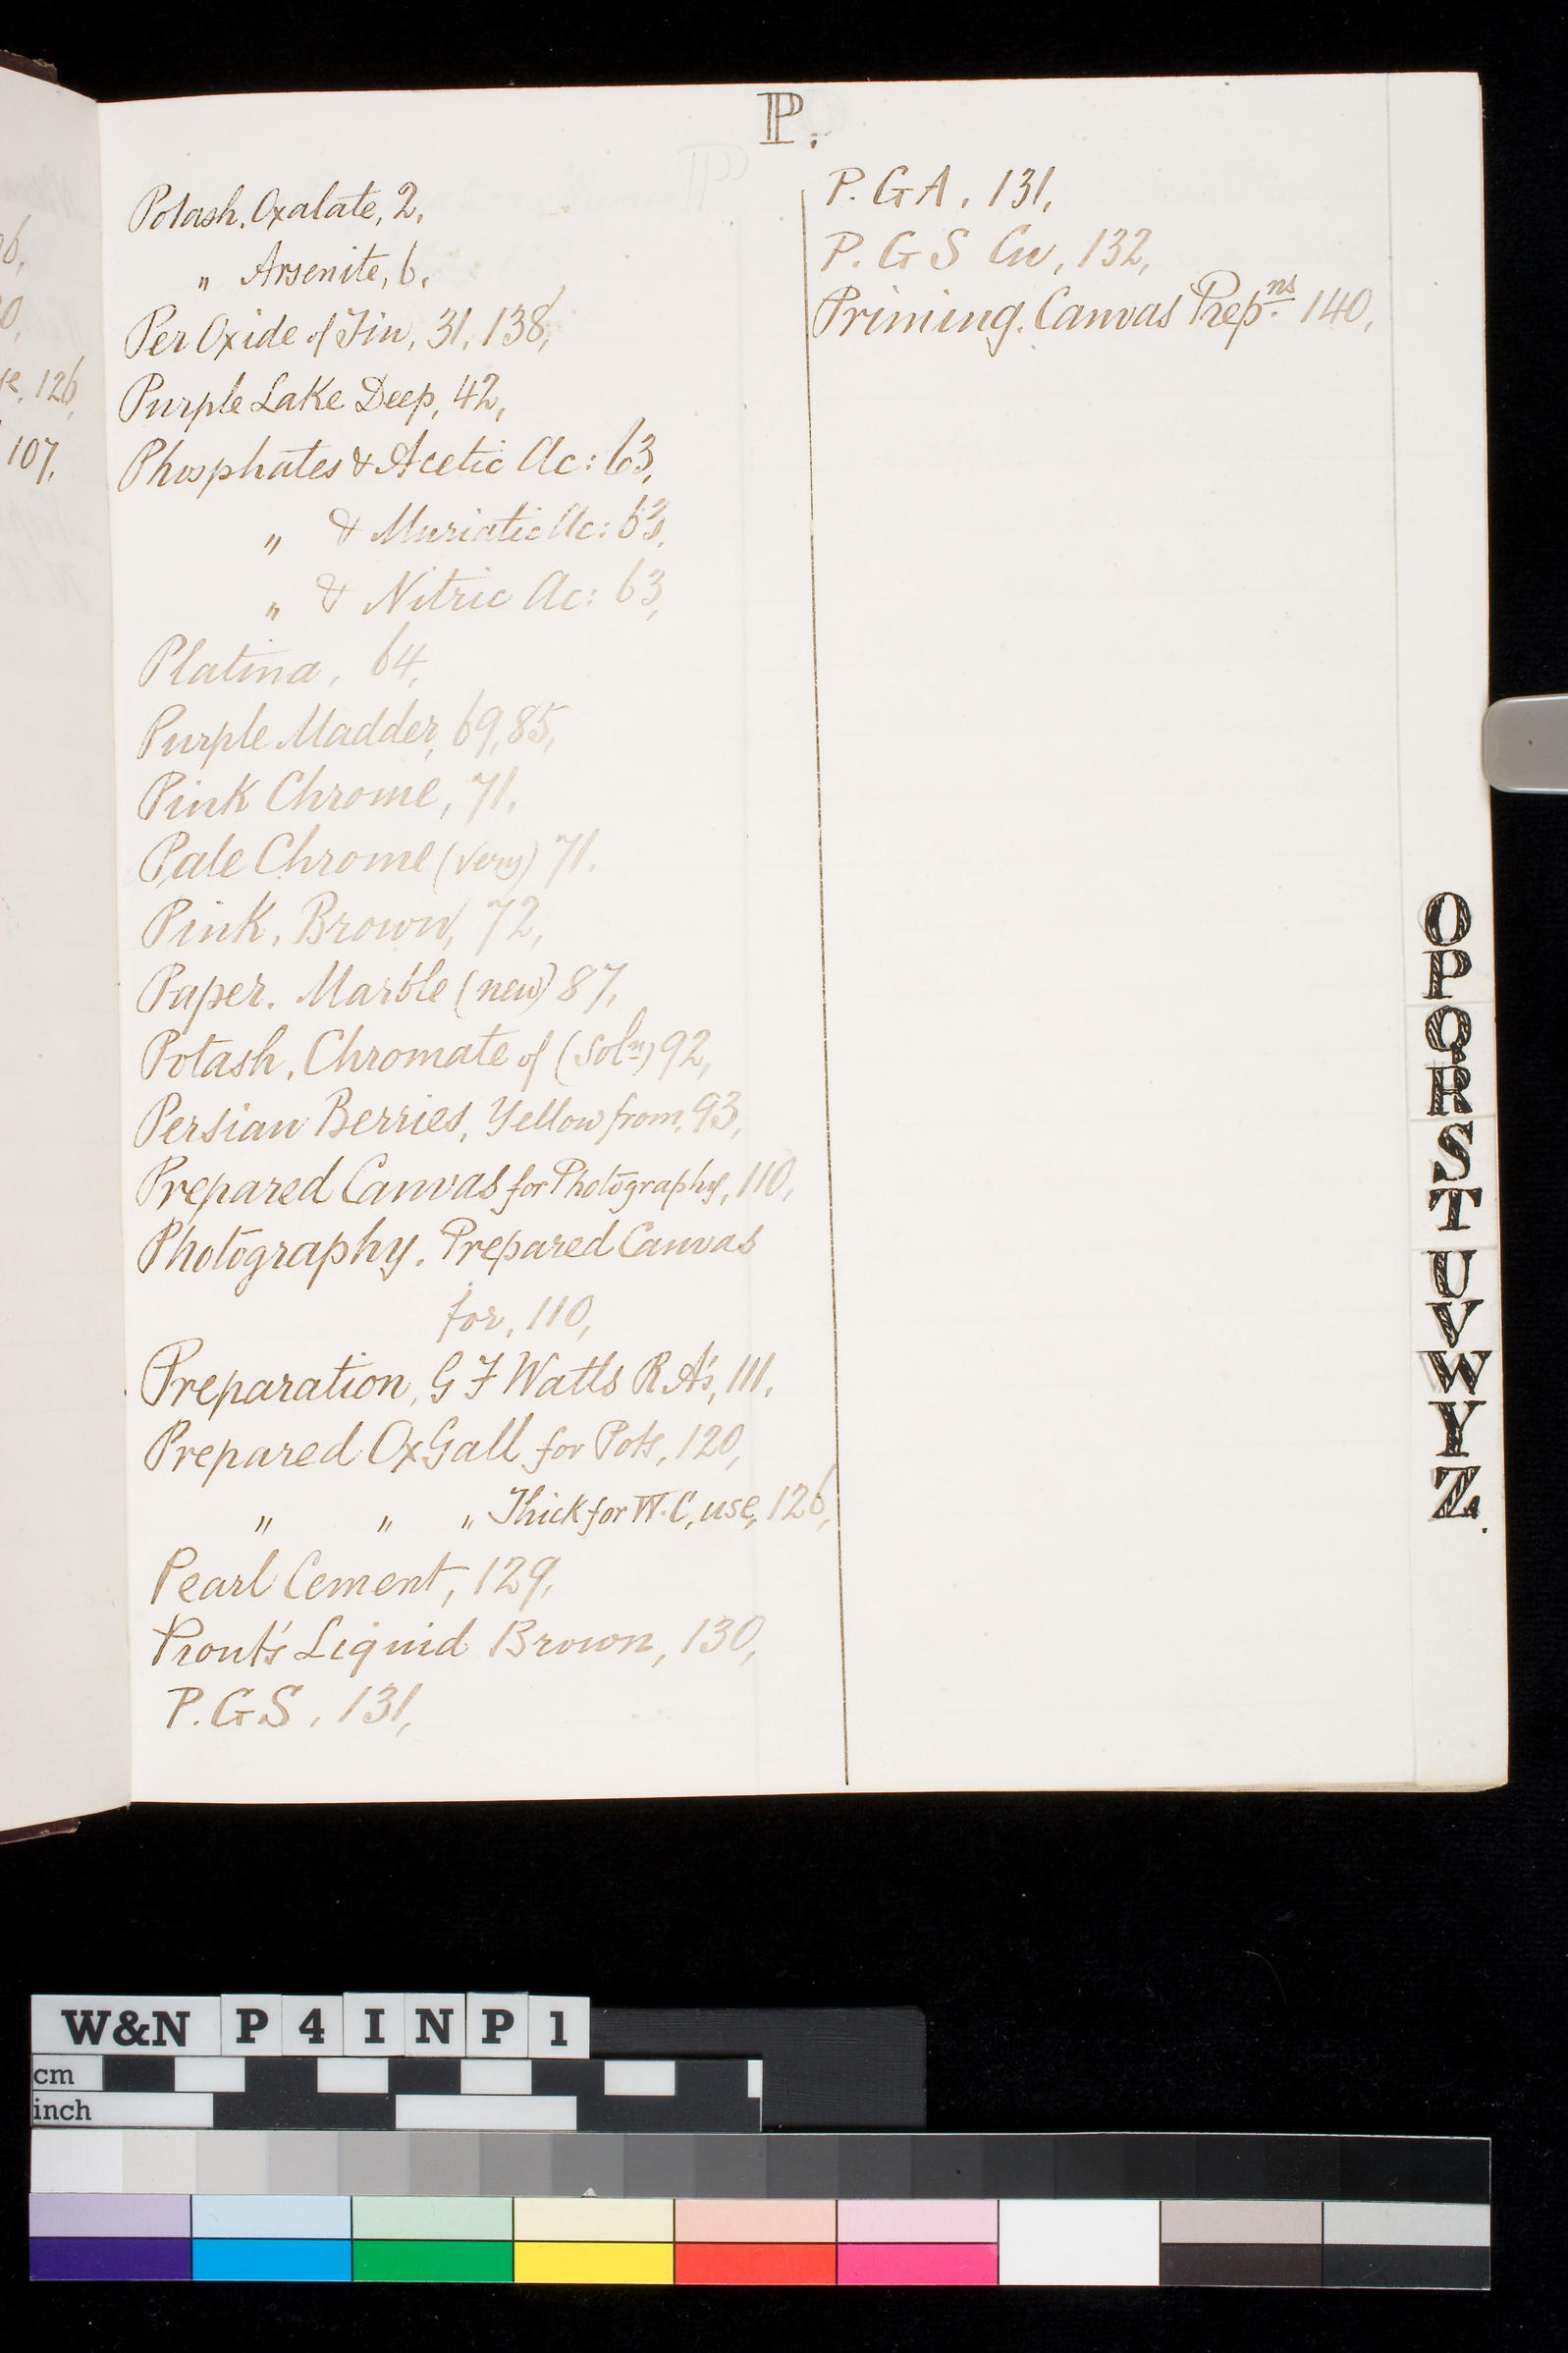 P.
Potash. Oxalate, 2,
„ Arsenite, 6,
Per Oxide of Tin, 31, 138,
Purple Lake Deep, 42,
Phosphates & Acetic Ac: 63,
„ & Muriatic Ac: 63,
„ & Nitric Ac: 63,
Platina, 64,
Purple Madder, 69, 85,
Pink Chrome, 71,
Pale Chrome (very) 71.
Pink, Brown, 72,
Paper. Marble (new) 87,
Potash, Chromate of (Solⁿ) 92,
Persian Berries, Yellow from, 93,
Prepared Canvas for Photography, 110,
Photography. Prepared Canvas
for, 110,
Preparation, G F Watts R A's, 111,
Prepared Ox Gall for Pots, 120,
„ „ „ Thick for W. C, use, 126,
Pearl Cement, 129,
Prout's Liquid Brown, 130,
P.G.S, 131,
P. G A, 131,
P. G S Cw, 132,
Priming. Canvas Prepⁿˢ 140,
6,
0,
126,
107,
O
P
Q
R
S
T
U
V
W
Y
Z.
W&N P 4 I N P 1
cm
inch